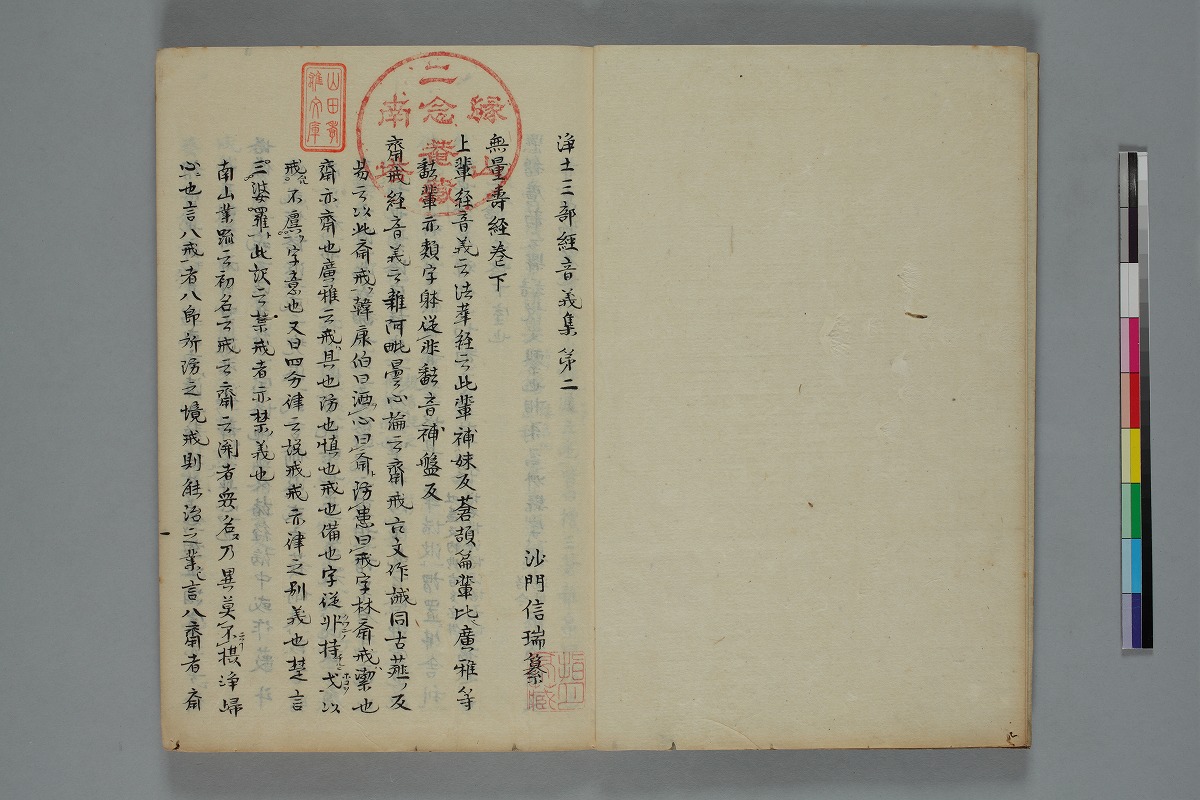 浄土三部經音義集 第二
沙門信瑞纂
無量壽經巻下
上輩 経音義云法華経云此輩補妹反蒼頡篇輩比廣雅等
輩亦類字躰従非 音補盤反
齋戒 経音義云雜阿毗曇心論云齋戒古文作誡同古薤反
易云以此斎戒韓康伯曰洒心曰斎防患曰戒字林斎戒潔也
齋亦齊也廣雅云戒具也防也慎也戒也備也字従廾持戈以
戒不虞字意也又曰四分律云説戒戒亦律之別義也梵言
三婆羅此訳云禁戒者亦禁義也
南山業疏云初名云戒云齋云関者名乃異莫不摂浄歸
心也言八戒者八即所防之境戒則能治之業言八齋者斎
縁山
二念菴藏
南
山田
文庫